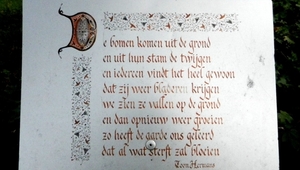 De bomen komen uit de grond
en uit hun stam de twijgen
en iedereen vindt het heel gewoon
dat zij weer bladeren krijgen
we zien ze vallen op de grond
en dan opnieuw weer groeien
zo heeft de aarde ons geleerd
dat al wat sterft zal bloeien
Toon Hermans